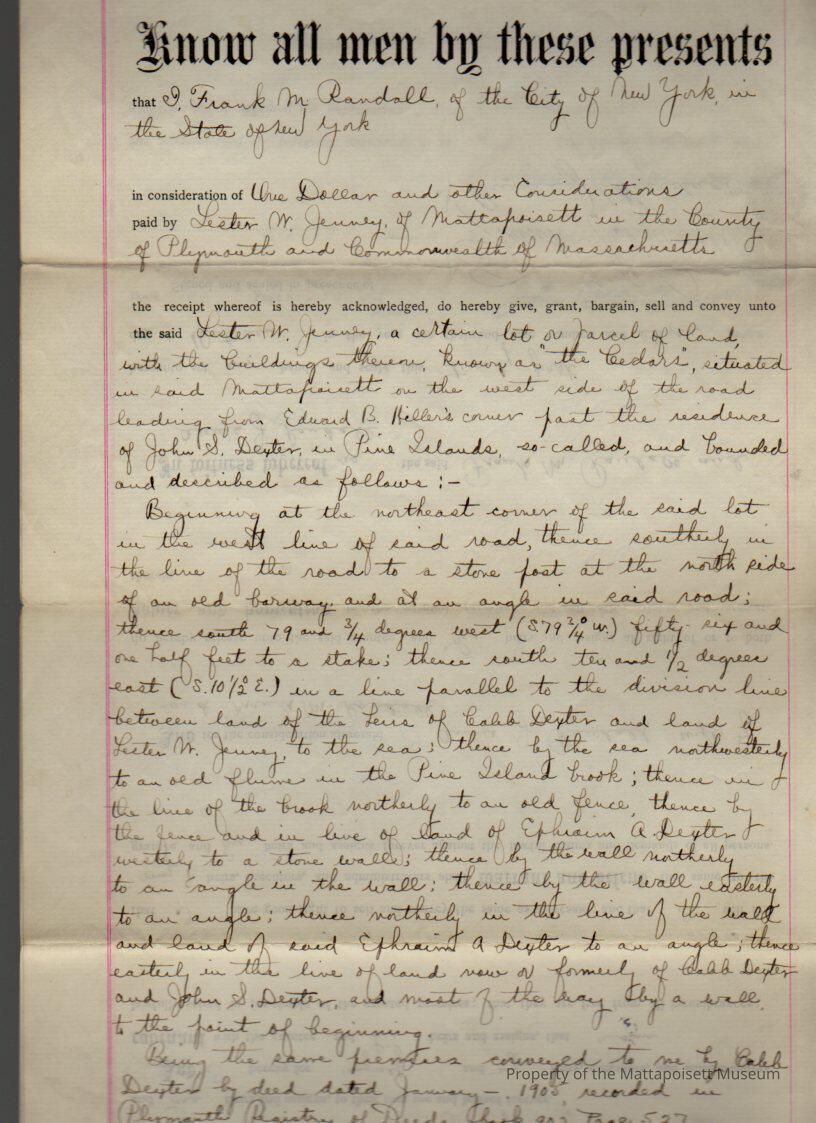 Know all men by these presents
that I, Frank M. Randall, of the City of New York, in
the State of New York
in consideration of One Dollar and other Considerations
paid by Lester W. Jenney, of Mattapoisett in the County
of Plymouth and Commonwealth of Massachusetts
the receipt whereof is hereby acknowledged, do hereby give, grant, bargain, sell and convey unto
the said Lester W. Jenney, a certain lot or parcel of land,
with the buildings thereon, known as "the Cedars", situated
in said Mattapoisett on the west side of the road
leading from Edward B. Hiller's corner past the residence
of John S. Dexter, in Pine Islands, so-called, and bounded
and described as follows :-
Beginning at the northeast corner of the said lot
in the west line of said road, thence southerly in
the line of the road to a stone post at the north side
of an old barway and at an angle in said road;
thence south 79 and 3/4 degrees west (S.79 3/4° W.) fifty-six and
one half feet to a stake; thence south ten and 1/2 degrees
east (S.10 1/2° E.) in a line parallel to the division line
between land of the heirs of Caleb Dexter and land of
Lester W. Jenney, to the sea; thence by the sea northwesterly
to an old flume in the Pine Island brook; thence in
the line of the brook northerly to an old fence, thence by
the fence and in line of land of Ephraim A Dexter
westerly to a stone wall; thence by the wall northerly
to an angle in the wall; thence by the wall easterly
to an angle; thence northerly in the line of the wall
and land of said Ephraim A Dexter to an angle; thence
easterly in the line of land now or formerly of Caleb Dexter
and John S. Dexter, and most of the way by a wall,
to the point of beginning.
Being the same premises conveyed to me by Caleb
Dexter by deed dated January - , 1905 recorded in
Plymouth Registry of Deeds, Book Page 527
Property of the Mattapoisett Museum